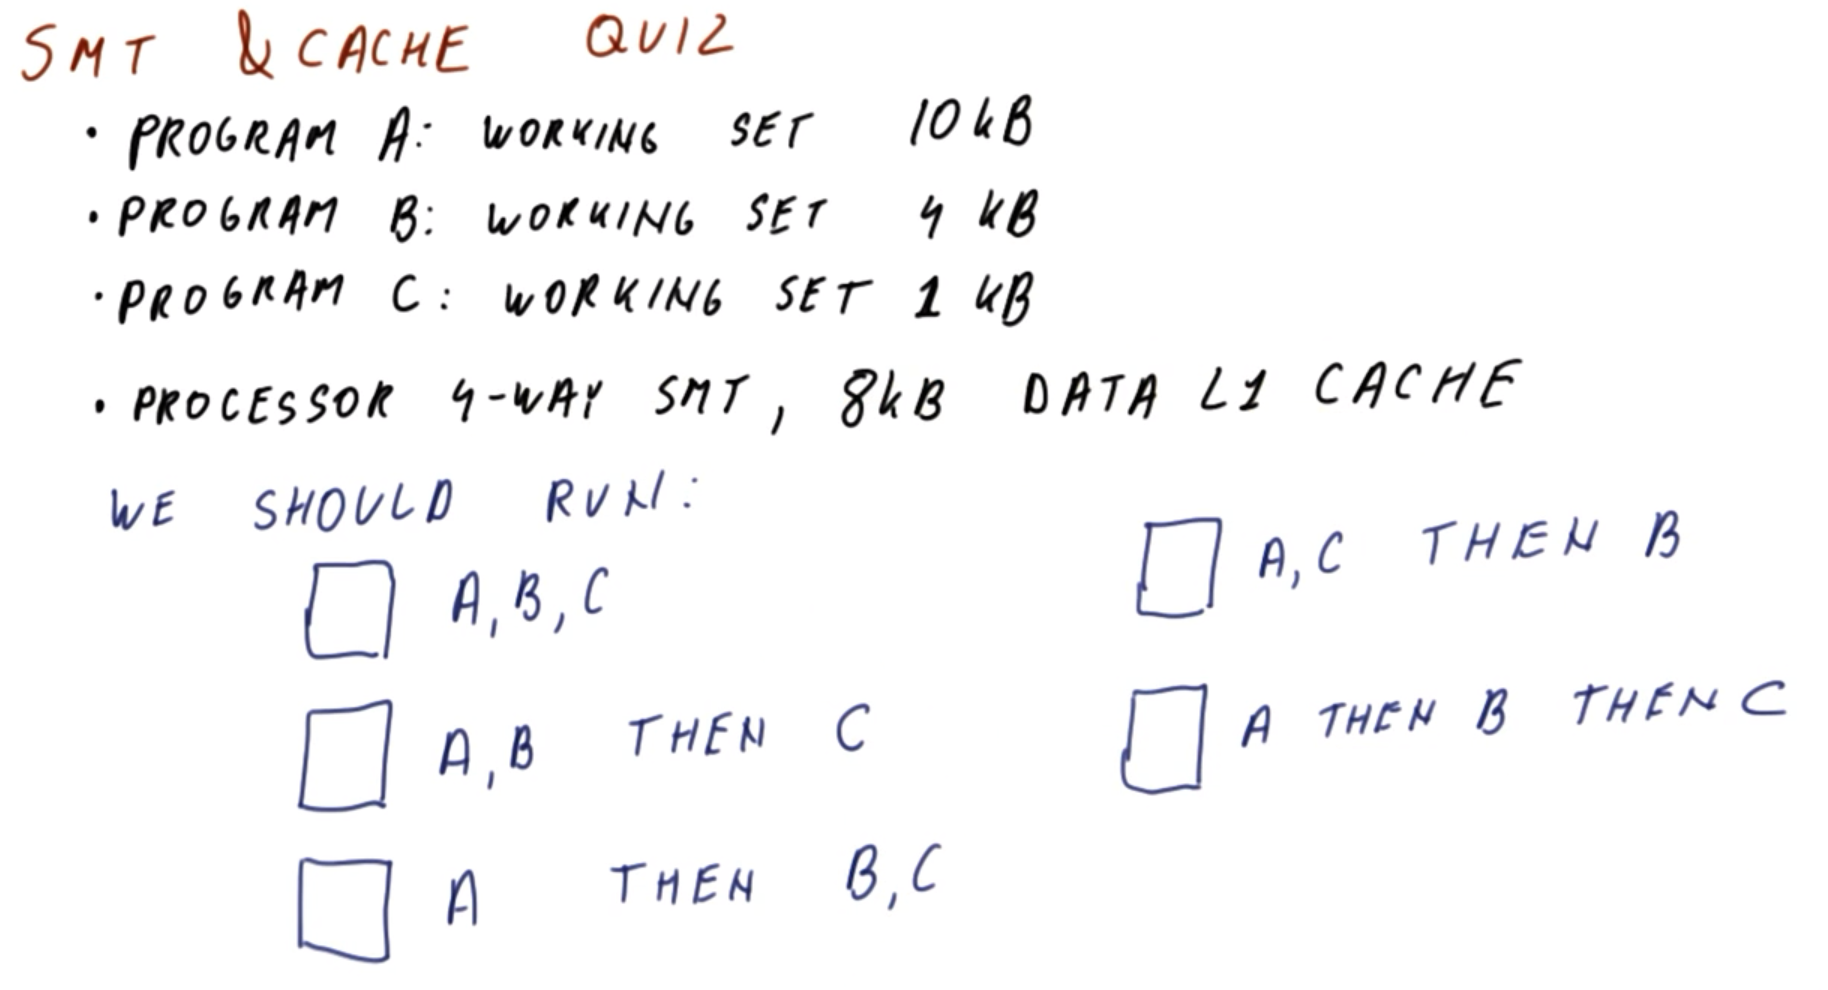 SMT & CACHE QUIZ
• PROGRAM A: WORKING SET 10 kB
• PROGRAM B: WORKING SET 4 kB
• PROGRAM C: WORKING SET 1 kB
• PROCESSOR 4-WAY SMT, 8kB DATA L1 CACHE
WE SHOULD RUN:
A, B, C
A, B THEN C
A THEN B, C
A, C THEN B
A THEN B THEN C